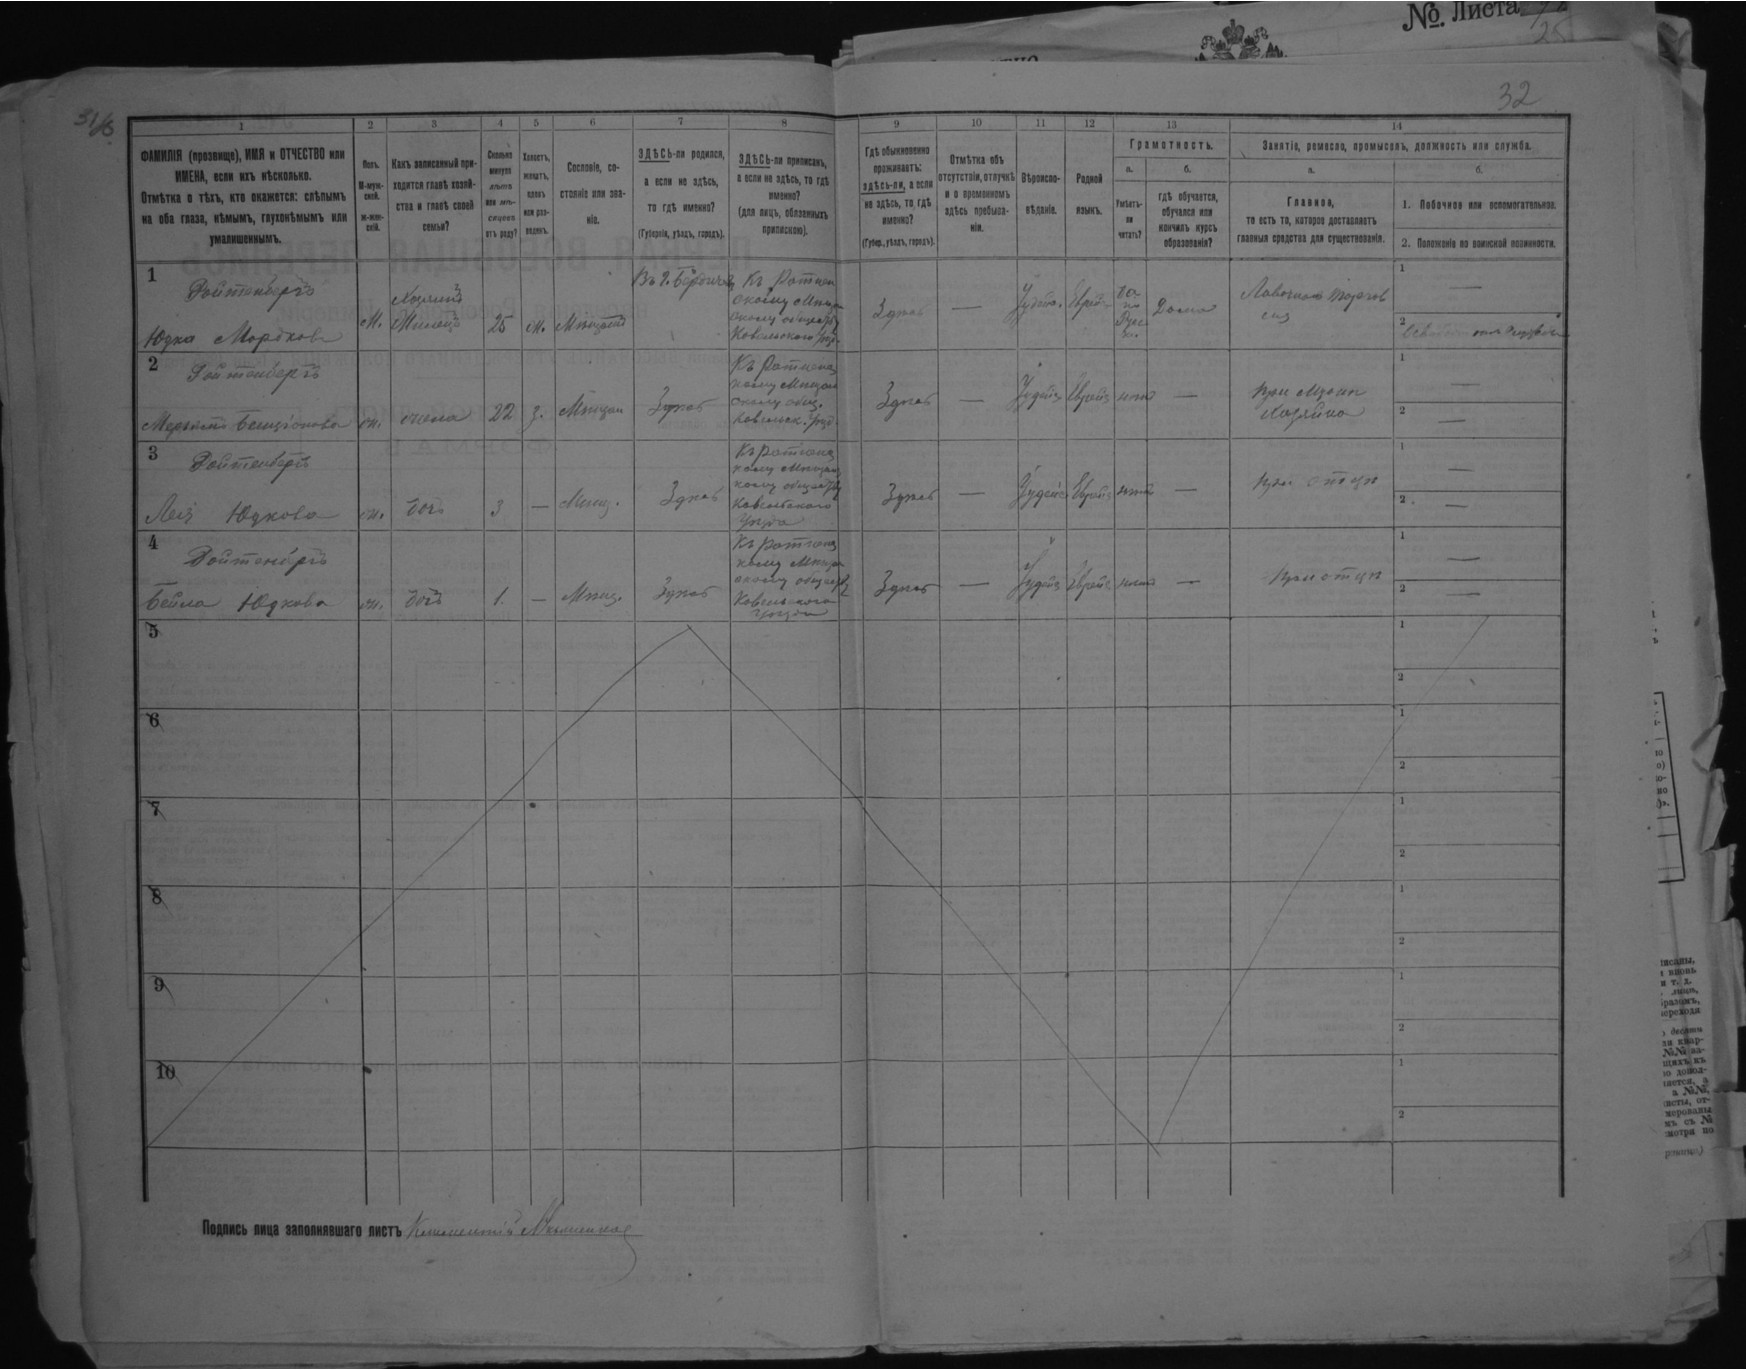 № Листа
25
31/б
32
1 2 3 4 5 6 7 8 9 10 11 12 13 14
ФАМИЛІЯ (прозвище), ИМЯ и ОТЧЕСТВО или
ИМЕНА, если ихъ нѣсколько.
Отмѣтка о тѣхъ, кто окажется: слѣпымъ
на оба глаза, нѣмымъ, глухонѣмымъ или
умалишеннымъ.
Полъ.
М-муж-
ской.
Ж-жен-
скій.
Какъ записанный при-
ходится главѣ хозяй-
ства и главѣ своей
семьи?
Сколько
минуло
лѣтъ
или мѣ-
сяцевъ
отъ роду?
Холостъ,
женатъ,
вдовъ
или раз-
веденъ.
Сословіе, со-
стояніе или зва-
ніе.
ЗДѢСЬ-ли родился,
а если не здѣсь,
то гдѣ именно?
(Губернія, уѣздъ, городъ).
ЗДѢСЬ-ли приписанъ,
а если не здѣсь, то гдѣ
именно?
(для лицъ, обязанныхъ
припискою).
Гдѣ обыкновенно
проживаетъ:
здѣсь-ли, а если
не здѣсь, то гдѣ
именно?
(Губер., уѣздъ, городъ).
Отмѣтка объ
отсутствіи, отлучкѣ
и о временномъ
здѣсь пребыва-
ніи.
Вѣроиспо-
вѣданіе.
Родной
языкъ.
Грамотность.
а.
Умѣетъ-
ли
читать?
б.
гдѣ обучается,
обучался или
кончилъ курсъ
образованія?
Занятіе, ремесло, промыселъ, должность или служба.
а.
Главное,
то есть то, которое доставляетъ
главныя средства для существованія.
б.
1. Побочное или вспомогательное.
2. Положеніе по воинской повинности.
1
Ройтенбергъ
Юдка Мордков
М.
Хозяинъ
25
ж.
Мѣщан
Въ г. Бердичев
Къ Ратнен
скому Мѣщан
скому обществ
Ковельского уѣз.
Здѣсь
—
Іудей.
Еврей
По-
Рус-
Дома
Лавочная торгов
1 —
2
2
Ройтенбергъ
ж.
жена
22
з.
Мѣщан
Здѣсь
Къ Ратненс
кому Мѣщан
скому общ.
Ковельск. уѣзд.
Здѣсь
—
Іудей
Еврей
нѣтъ
—
При мужѣ
Хозяина
1 —
2 —
3
Ройтенбергъ
Лея Юдкова
ж.
дочь
3
—
Мѣщ.
Здѣсь
Къ Ратненс
кому Мѣщанс
кому обществу
Ковельского
Уѣзда
Здѣсь
—
Іудей
Еврей
нѣтъ
—
При отцѣ
1 —
2 —
4
Ройтенбергъ
Бейла Юдкова
ж.
дочь
1.
—
Мѣщ.
Здѣсь
Къ Ратненс
кому Мѣщан
скому обществ
Ковельского
Уѣзда
Здѣсь
—
Іудей
Еврей
нѣтъ
—
При отцѣ
1 —
2 —
5
1
2
6
1
2
7
1
2
8
1
2
9
1
2
10
1
2
Подпись лица заполнявшаго листъ